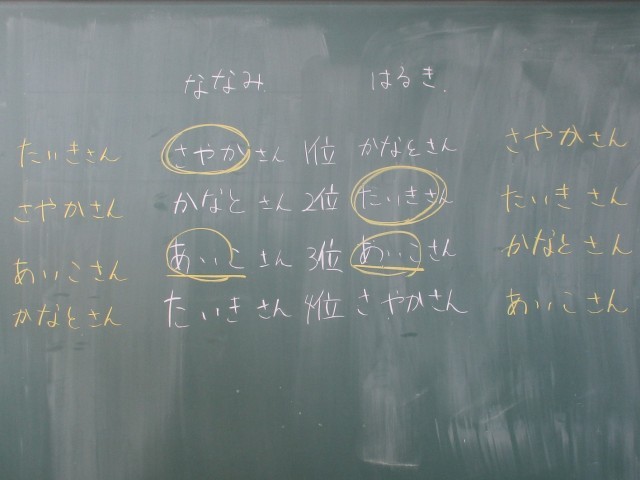 ななみ はるき.
たいきさん さやかさん 1位 かなとさん さやかさん
さやかさん かなとさん 2位 たいきさん たいきさん
あいこさん あいこさん 3位 あいこさん かなとさん
かなとさん たいきさん 4位 さやかさん あいこさん